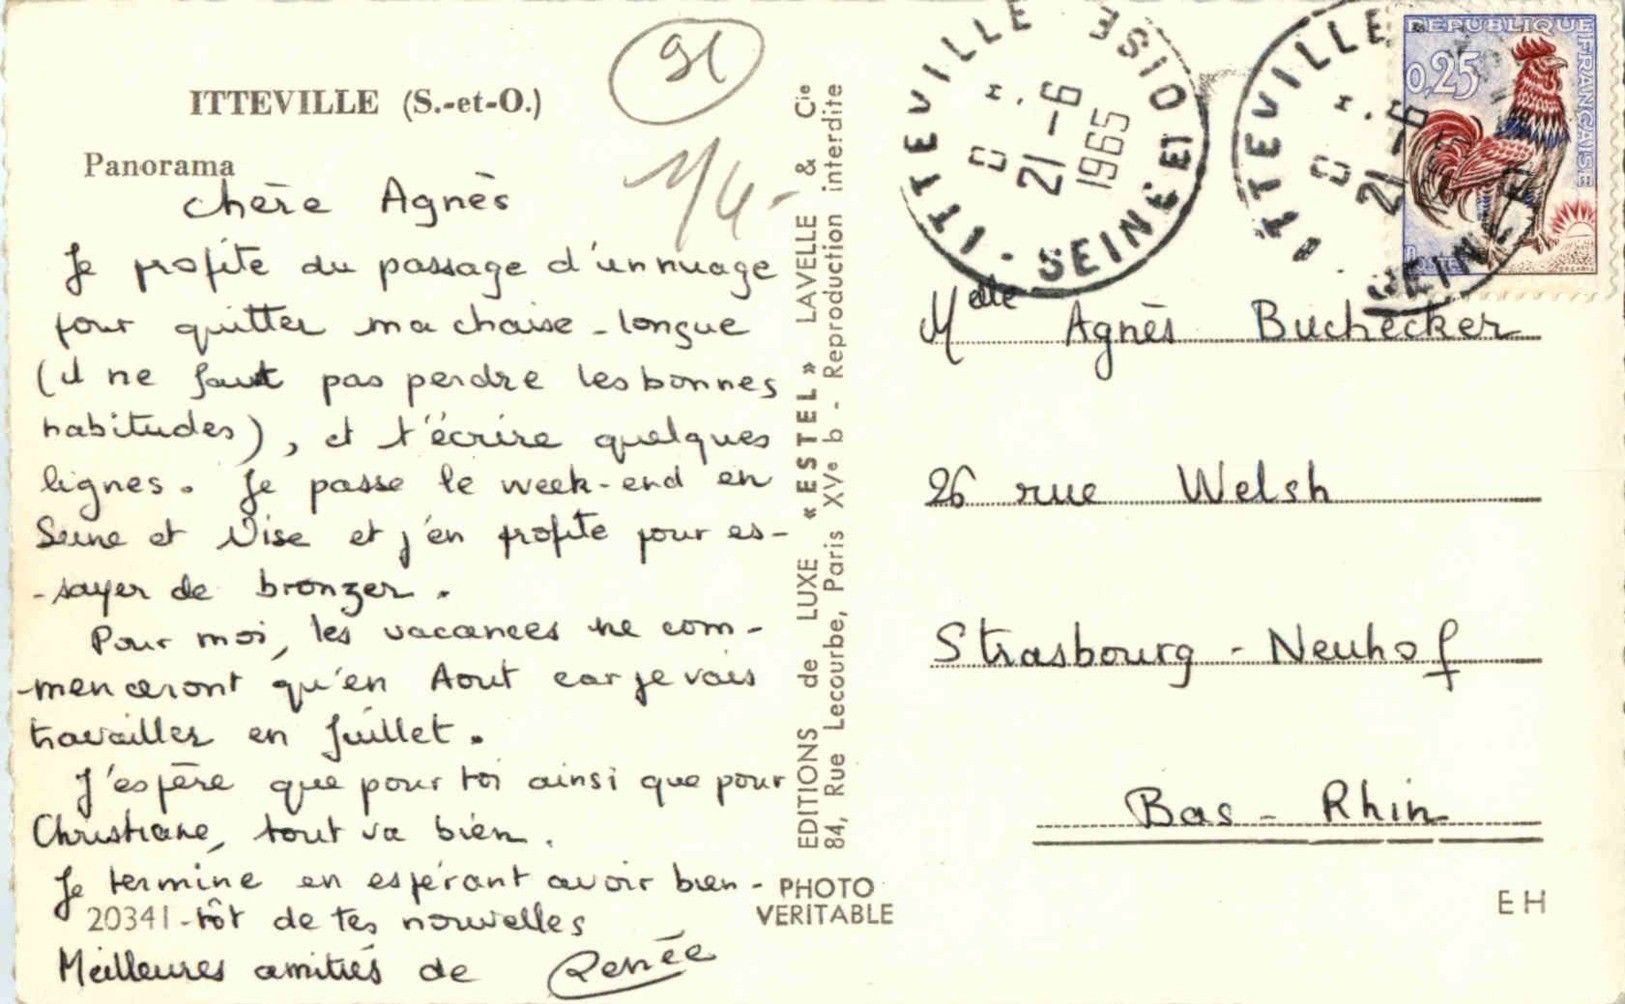 ITTEVILLE (S.-et-O.)
91
Panorama
1/4-
chère Agnès
Je profite du passage d'un nuage
pour quitter ma chaise-longue
(il ne faut pas perdre les bonnes
habitudes), et t'écrire quelques
lignes. Je passe le week-end en
Seine et Oise et j'en profite pour es-
-sayer de bronzer.
Pour moi, les vacances ne com-
-menceront qu'en Aout car je vais
travailler en Juillet.
J'espère que pour toi ainsi que pour
Christiane, tout va bien.
Je termine en espérant avoir bien-
20341 -tôt de tes nouvelles
Meilleures amitiés de Renée
EDITIONS de LUXE « ESTEL » LAVELLE & Cie
84, Rue Lecourbe, Paris XVe b - Reproduction interdite
PHOTO
VERITABLE
ITTEVILLE
21-6
1965
SEINE ET OISE
ITTEVILLE
21-6
SEINE
REPUBLIQUE FRANÇAISE
0,25
POSTES
Melle Agnès Buchecker
26 rue Welsh
Strasbourg - Neuhof
Bas-Rhin
EH